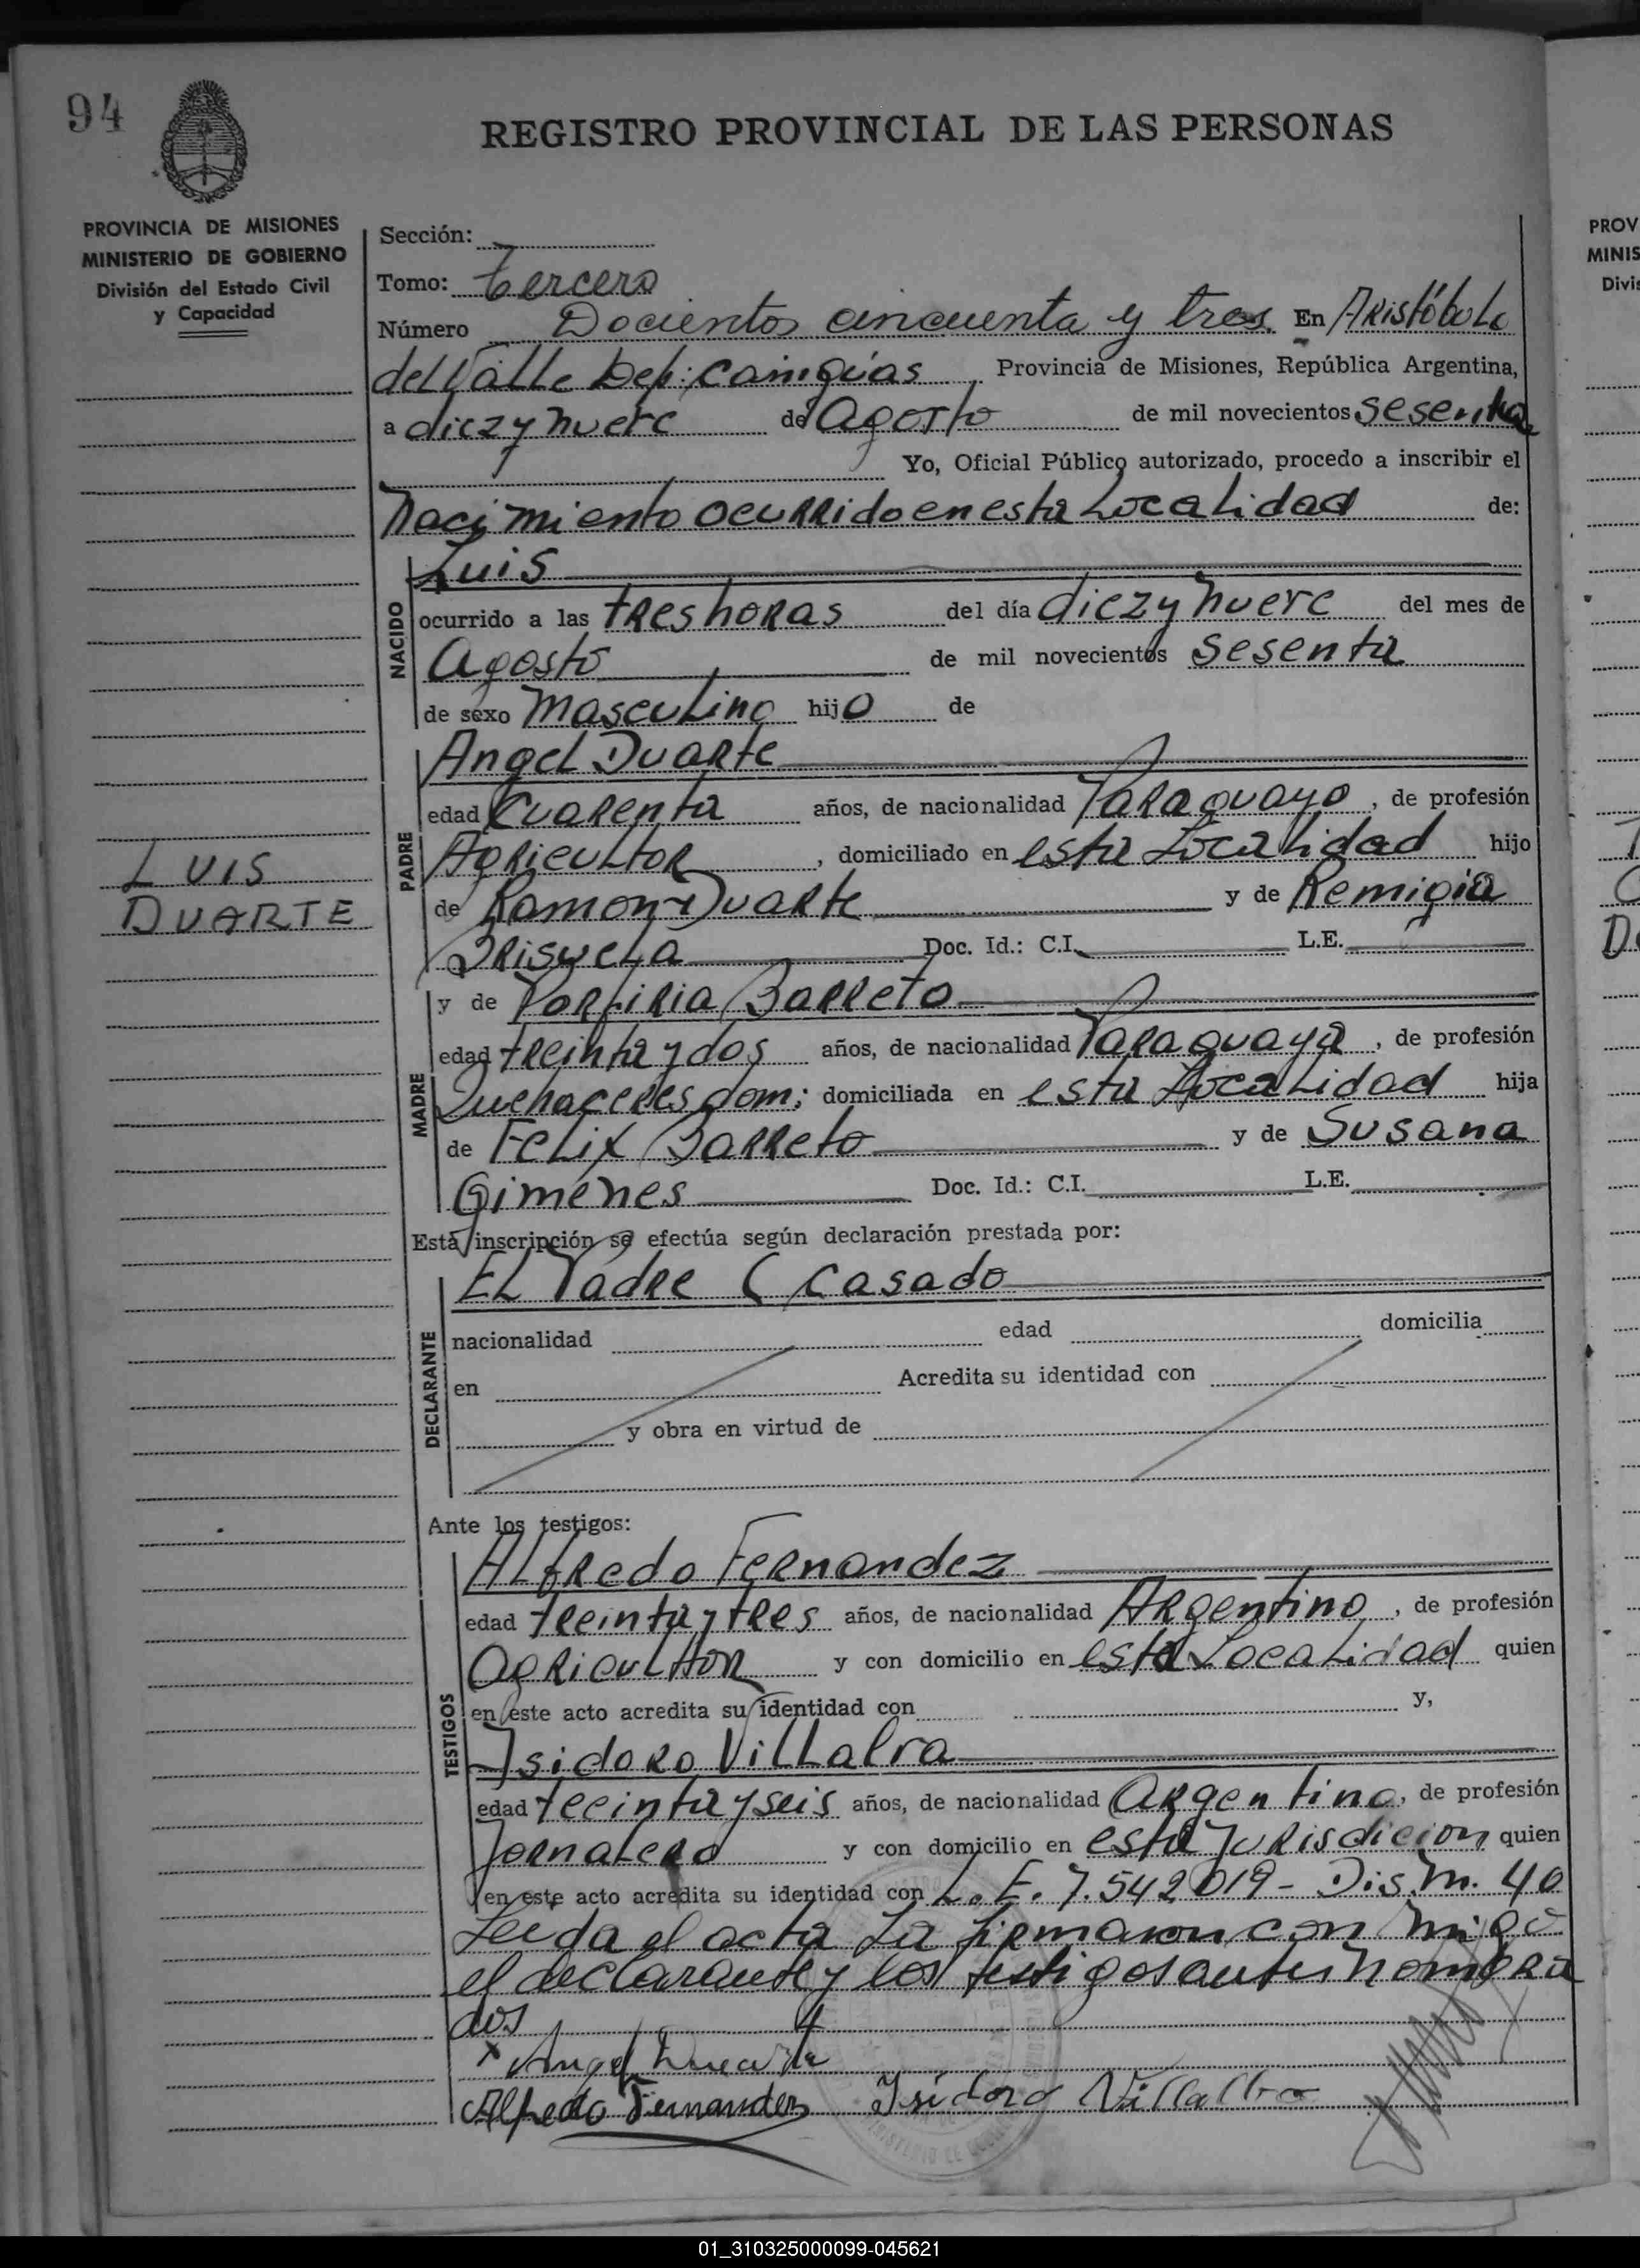 94
REGISTRO PROVINCIAL DE LAS PERSONAS
PROVINCIA DE MISIONES
MINISTERIO DE GOBIERNO
División del Estado Civil
y Capacidad
Sección:
Tomo: tercero
Número Docientos cincuenta y tres En Aristóbulo
del Valle Dep: Cainguas Provincia de Misiones, República Argentina,
a diez y nueve de Agosto de mil novecientos sesenta
Yo, Oficial Público autorizado, procedo a inscribir el
Nacimiento ocurrido en esta Localidad de:
NACIDO
Luis
ocurrido a las tres horas del día diez y nueve del mes de
Agosto de mil novecientos sesenta
de sexo Masculino hijo de
PADRE
Angel Duarte
edad Cuarenta años, de nacionalidad Paraguayo, de profesión
Agricultor, domiciliado en esta Localidad hijo
de Ramon Duarte y de Remigia
Brisuela Doc. Id.: C.I. L.E.
LUIS
DUARTE
MADRE
y de Porfiria Barreto
edad treinta y dos años, de nacionalidad Paraguaya, de profesión
Quehaceres dom; domiciliada en esta Localidad hija
de Felix Barreto y de Susana
Gimenes Doc. Id.: C.I. L.E.
Esta inscripción se efectúa según declaración prestada por:
DECLARANTE
EL Padre ( Casado
nacionalidad edad domicilia
en Acredita su identidad con
y obra en virtud de
Ante los testigos:
TESTIGOS
Alfredo Fernandez
edad treinta y tres años, de nacionalidad Argentino, de profesión
Agricultor y con domicilio en esta Localidad quien
en este acto acredita su identidad con y,
Isidoro Villalva
edad treinta y seis años, de nacionalidad Argentino, de profesión
Jornalero y con domicilio en esta Jurisdicion quien
en este acto acredita su identidad con L.E. 7.542019 - Dis.M. 40
Leida el acta La firmaron con migo
el declarante y los testigos antes nombra
dos
x Angel Duarte
Alfredo Fernandez Isidoro Villalba
PROV
MINIS
Divis
01_310325000099-045621